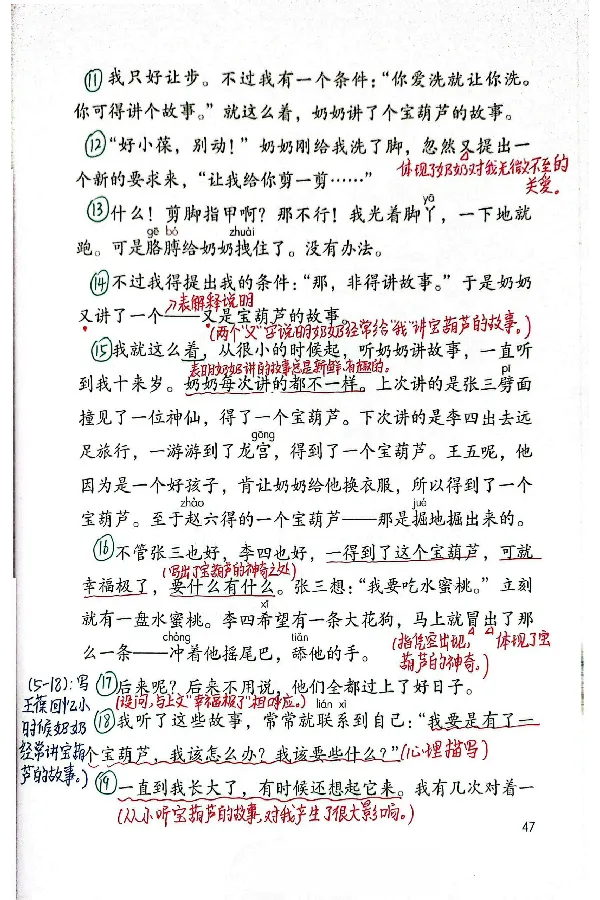 ⑪我只好让步。不过我有一个条件：“你爱洗就让你洗。
你可得讲个故事。”就这么着，奶奶讲了个宝葫芦的故事。
⑫“好小葆，别动！”奶奶刚给我洗了脚，忽然又提出一
个新的要求来，“让我给你剪一剪……”
体现了奶奶对我无微不至的
关爱。
⑬什么！剪脚指甲啊？那不行！我光着脚丫，一下地就
yā
跑。可是胳膊给奶奶拽住了。没有办法。
gē bó zhuài
⑭不过我得提出我的条件：“那，非得讲故事。”于是奶奶
表解释说明
又讲了一个——又是宝葫芦的故事。
(两个“又”字说明奶奶经常给“我”讲宝葫芦的故事。)
⑮我就这么着，从很小的时候起，听奶奶讲故事，一直听
表明奶奶讲的故事总是新鲜、有趣的。
到我十来岁。奶奶每次讲的都不一样。上次讲的是张三劈面
pī
撞见了一位神仙，得了一个宝葫芦。下次讲的是李四出去远
足旅行，一游游到了龙宫，得到了一个宝葫芦。王五呢，他
gōng
因为是一个好孩子，肯让奶奶给他换衣服，所以得到了一个
宝葫芦。至于赵六得的一个宝葫芦——那是掘地掘出来的。
zhào jué
⑯不管张三也好，李四也好，一得到了这个宝葫芦，可就
(写出了宝葫芦的神奇之处)
幸福极了，要什么有什么。张三想：“我要吃水蜜桃。”立刻
就有一盘水蜜桃。李四希望有一条大花狗，马上就冒出了那
xī
么一条——冲着他摇尾巴，舔他的手。
chòng tiǎn
(指凭空出现，体现了宝
葫芦的神奇。)
⑰后来呢？后来不用说，他们全都过上了好日子。
(设问，与上文“幸福极了”相呼应。)
⑱我听了这些故事，常常就联系到自己：“我要是有了一
lián xì
个宝葫芦，我该怎么办？我该要些什么？”(心理描写)
(5-18)：写
王葆回忆小
时候奶奶
经常讲宝葫
芦的故事。)
⑲一直到我长大了，有时候还想起它来。我有几次对着一
(从小听宝葫芦的故事，对我产生了很大影响。)
47